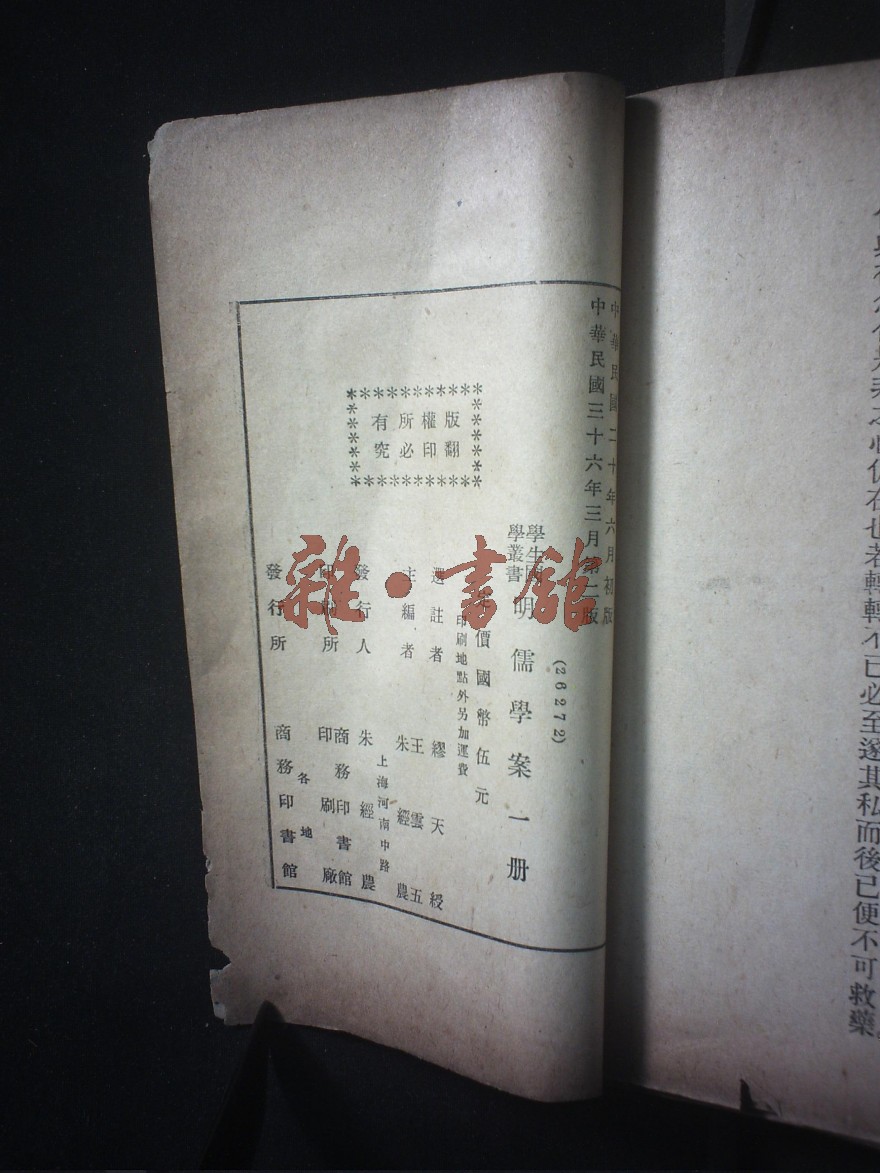 中華民國二十年六月初版
中華民國三十六年三月第二版
(26272)
學生國學叢書
明儒學案一册
定價國幣伍元
印刷地點外另加運費
選註者 繆天綬
主編者 王雲五 朱經農
上海河南中路
發行人 朱經農
印刷所 商務印書館印刷廠
各地
發行所 商務印書館
版權所有
翻印必究
雜·書館
也者轉轉不已必至遂其私而後已便不可救藥